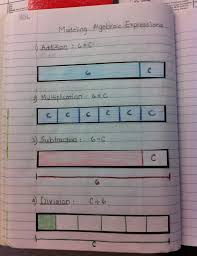 Modeling Algebraic Expressions
1) Addition : 6+C
6 C
2) Multiplication : 6×C
C C C C C C
3) Subtraction : 6-C
C
6
4) Division : C÷6
C